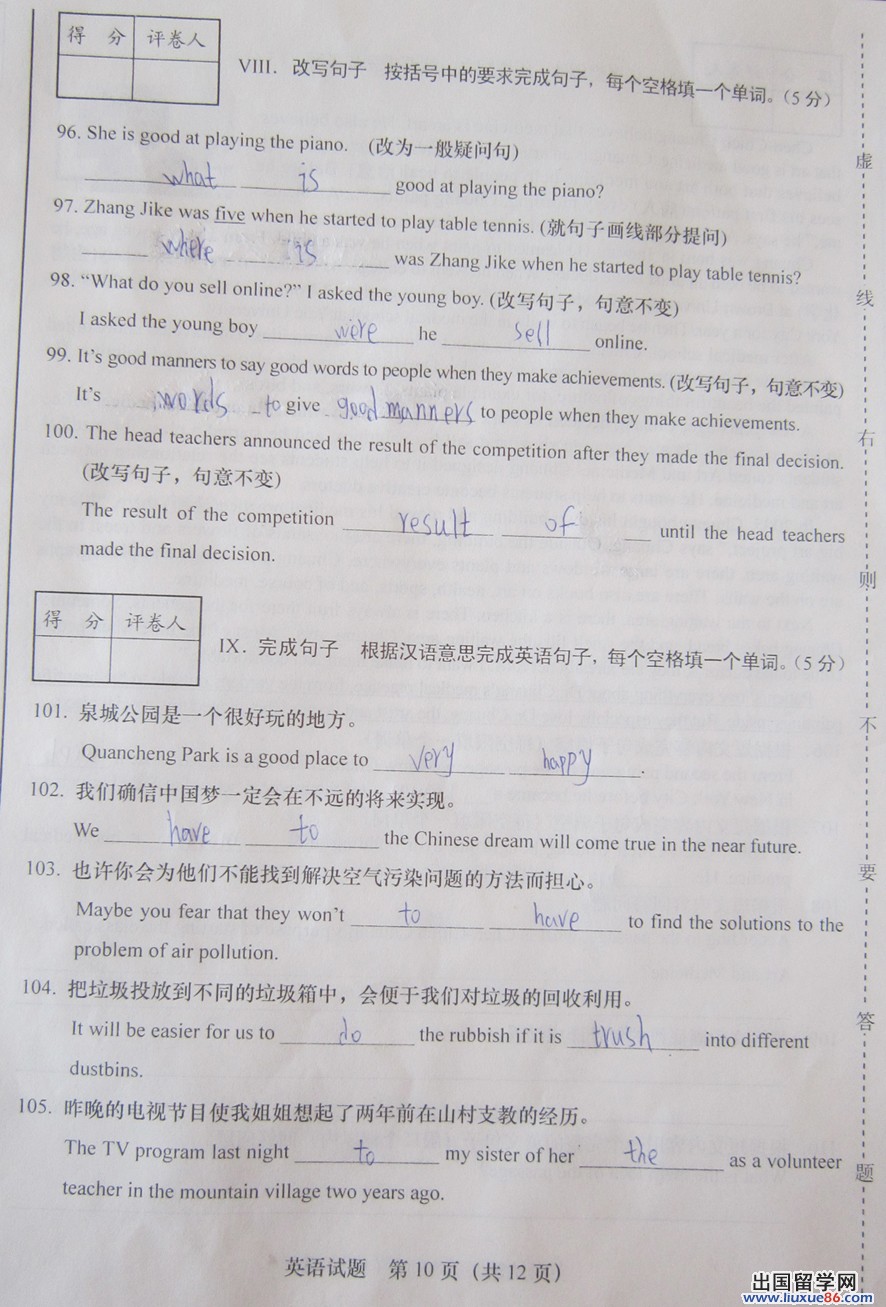 得 分 评卷人
VIII. 改写句子 按括号中的要求完成句子，每个空格填一个单词。（5 分）
96. She is good at playing the piano. (改为一般疑问句)
what is good at playing the piano?
97. Zhang Jike was five when he started to play table tennis. (就句子画线部分提问)
where is was Zhang Jike when he started to play table tennis?
98. “What do you sell online?” I asked the young boy. (改写句子，句意不变)
I asked the young boy were he sell online.
99. It’s good manners to say good words to people when they make achievements. (改写句子，句意不变)
It’s words to give good manners to people when they make achievements.
100. The head teachers announced the result of the competition after they made the final decision.
(改写句子，句意不变)
The result of the competition result of until the head teachers
made the final decision.
得 分 评卷人
IX. 完成句子 根据汉语意思完成英语句子，每个空格填一个单词。（5 分）
101. 泉城公园是一个很好玩的地方。
Quancheng Park is a good place to very happy.
102. 我们确信中国梦一定会在不远的将来实现。
We have to the Chinese dream will come true in the near future.
103. 也许你会为他们不能找到解决空气污染问题的方法而担心。
Maybe you fear that they won’t to have to find the solutions to the
problem of air pollution.
104. 把垃圾投放到不同的垃圾箱中，会便于我们对垃圾的回收利用。
It will be easier for us to do the rubbish if it is trush into different
dustbins.
105. 昨晚的电视节目使我姐姐想起了两年前在山村支教的经历。
The TV program last night to my sister of her the as a volunteer
teacher in the mountain village two years ago.
英语试题 第 10 页（共 12 页）
虚线右则不要答题
出国留学网
www.liuxue86.com